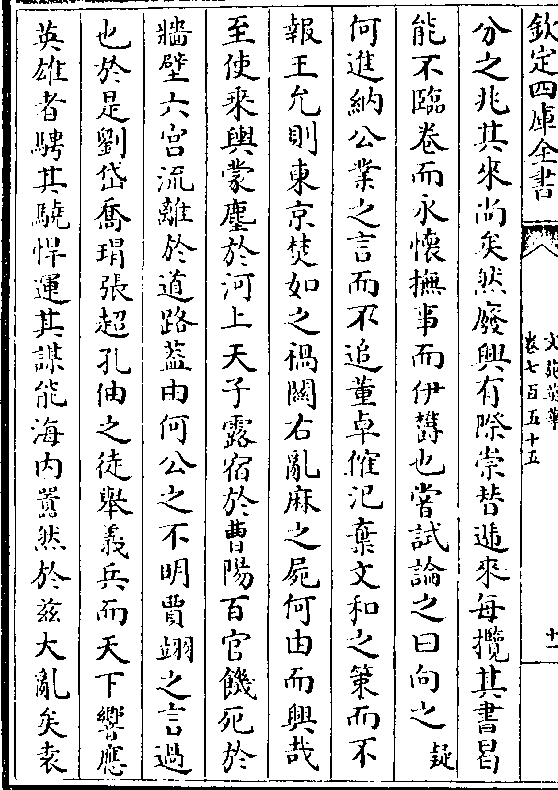 欽定四庫全書
文苑英華
卷七百五十五
十一
分之兆其來尚矣然廢興有際崇替遞來每攬其書曷
能不臨卷而永懷撫事而伊鬱也嘗試論之曰向之疑
何進納公業之言而不追董卓傕汜棄文和之策而不
報王允則東京焚如之禍關右亂麻之屍何由而興哉
至使乘輿蒙塵於河上天子露宿於曹陽百官饑死於
牆壁六宮流離於道路蓋由何公之不明賈詡之言過
也於是劉岱喬瑁張超孔伷之徒舉義兵而天下響應
英雄者騁其驍悍運其謀能海內囂然於茲大亂矣袁